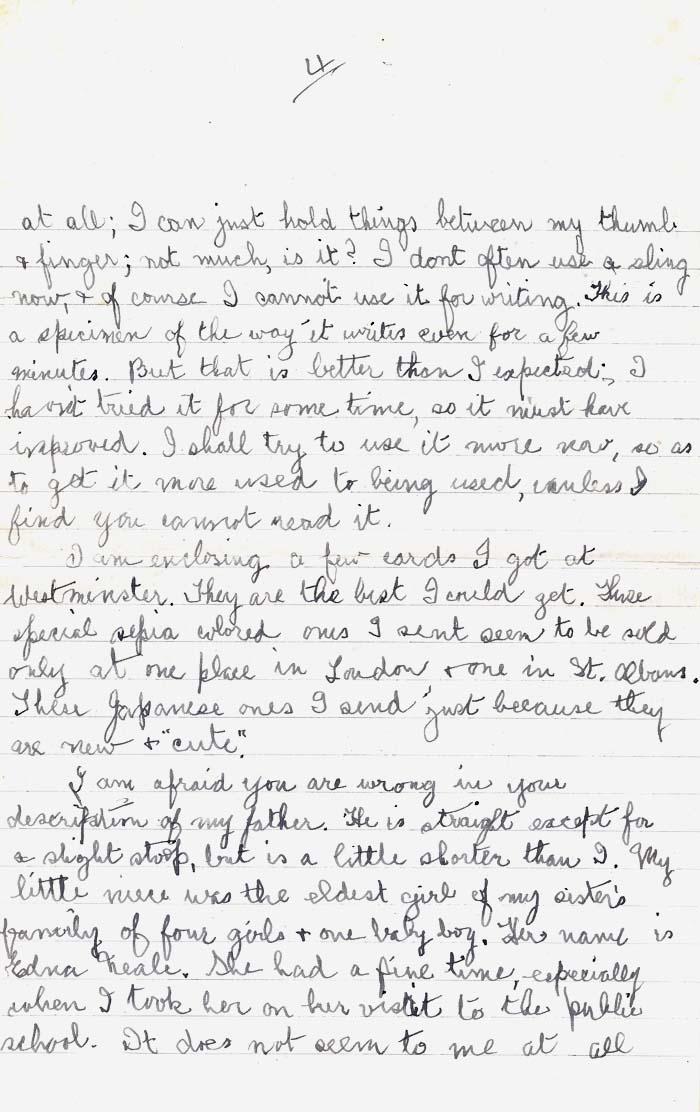 4
at all; I can just hold things between my thumb
& finger; not much, is it? I dont often use a sling
now, & of course I cannot use it for writing. This is
a specimen of the way it writes even for a few
minutes. But that is better than I expected; I
havn't tried it for some time, so it must have
improved. I shall try to use it more now, so as
to get it more used to being used, unless I
find you cannot read it.
I am enclosing a few cards I got at
Westminster. They are the best I could get. Those
special sepia colored ones I sent seem to be sold
only at one place in London & one in St. Albans.
These Japanese ones I send just because they
are new & "cute".
I am afraid you are wrong in your
description of my father. He is straight except for
a slight stoop, but is a little shorter than I. My
little niece was the eldest girl of my sister's
family of four girls & one baby boy. Her name is
Edna Neale. She had a fine time, especially
when I took her on her visit to the public
school. It does not seem to me at all